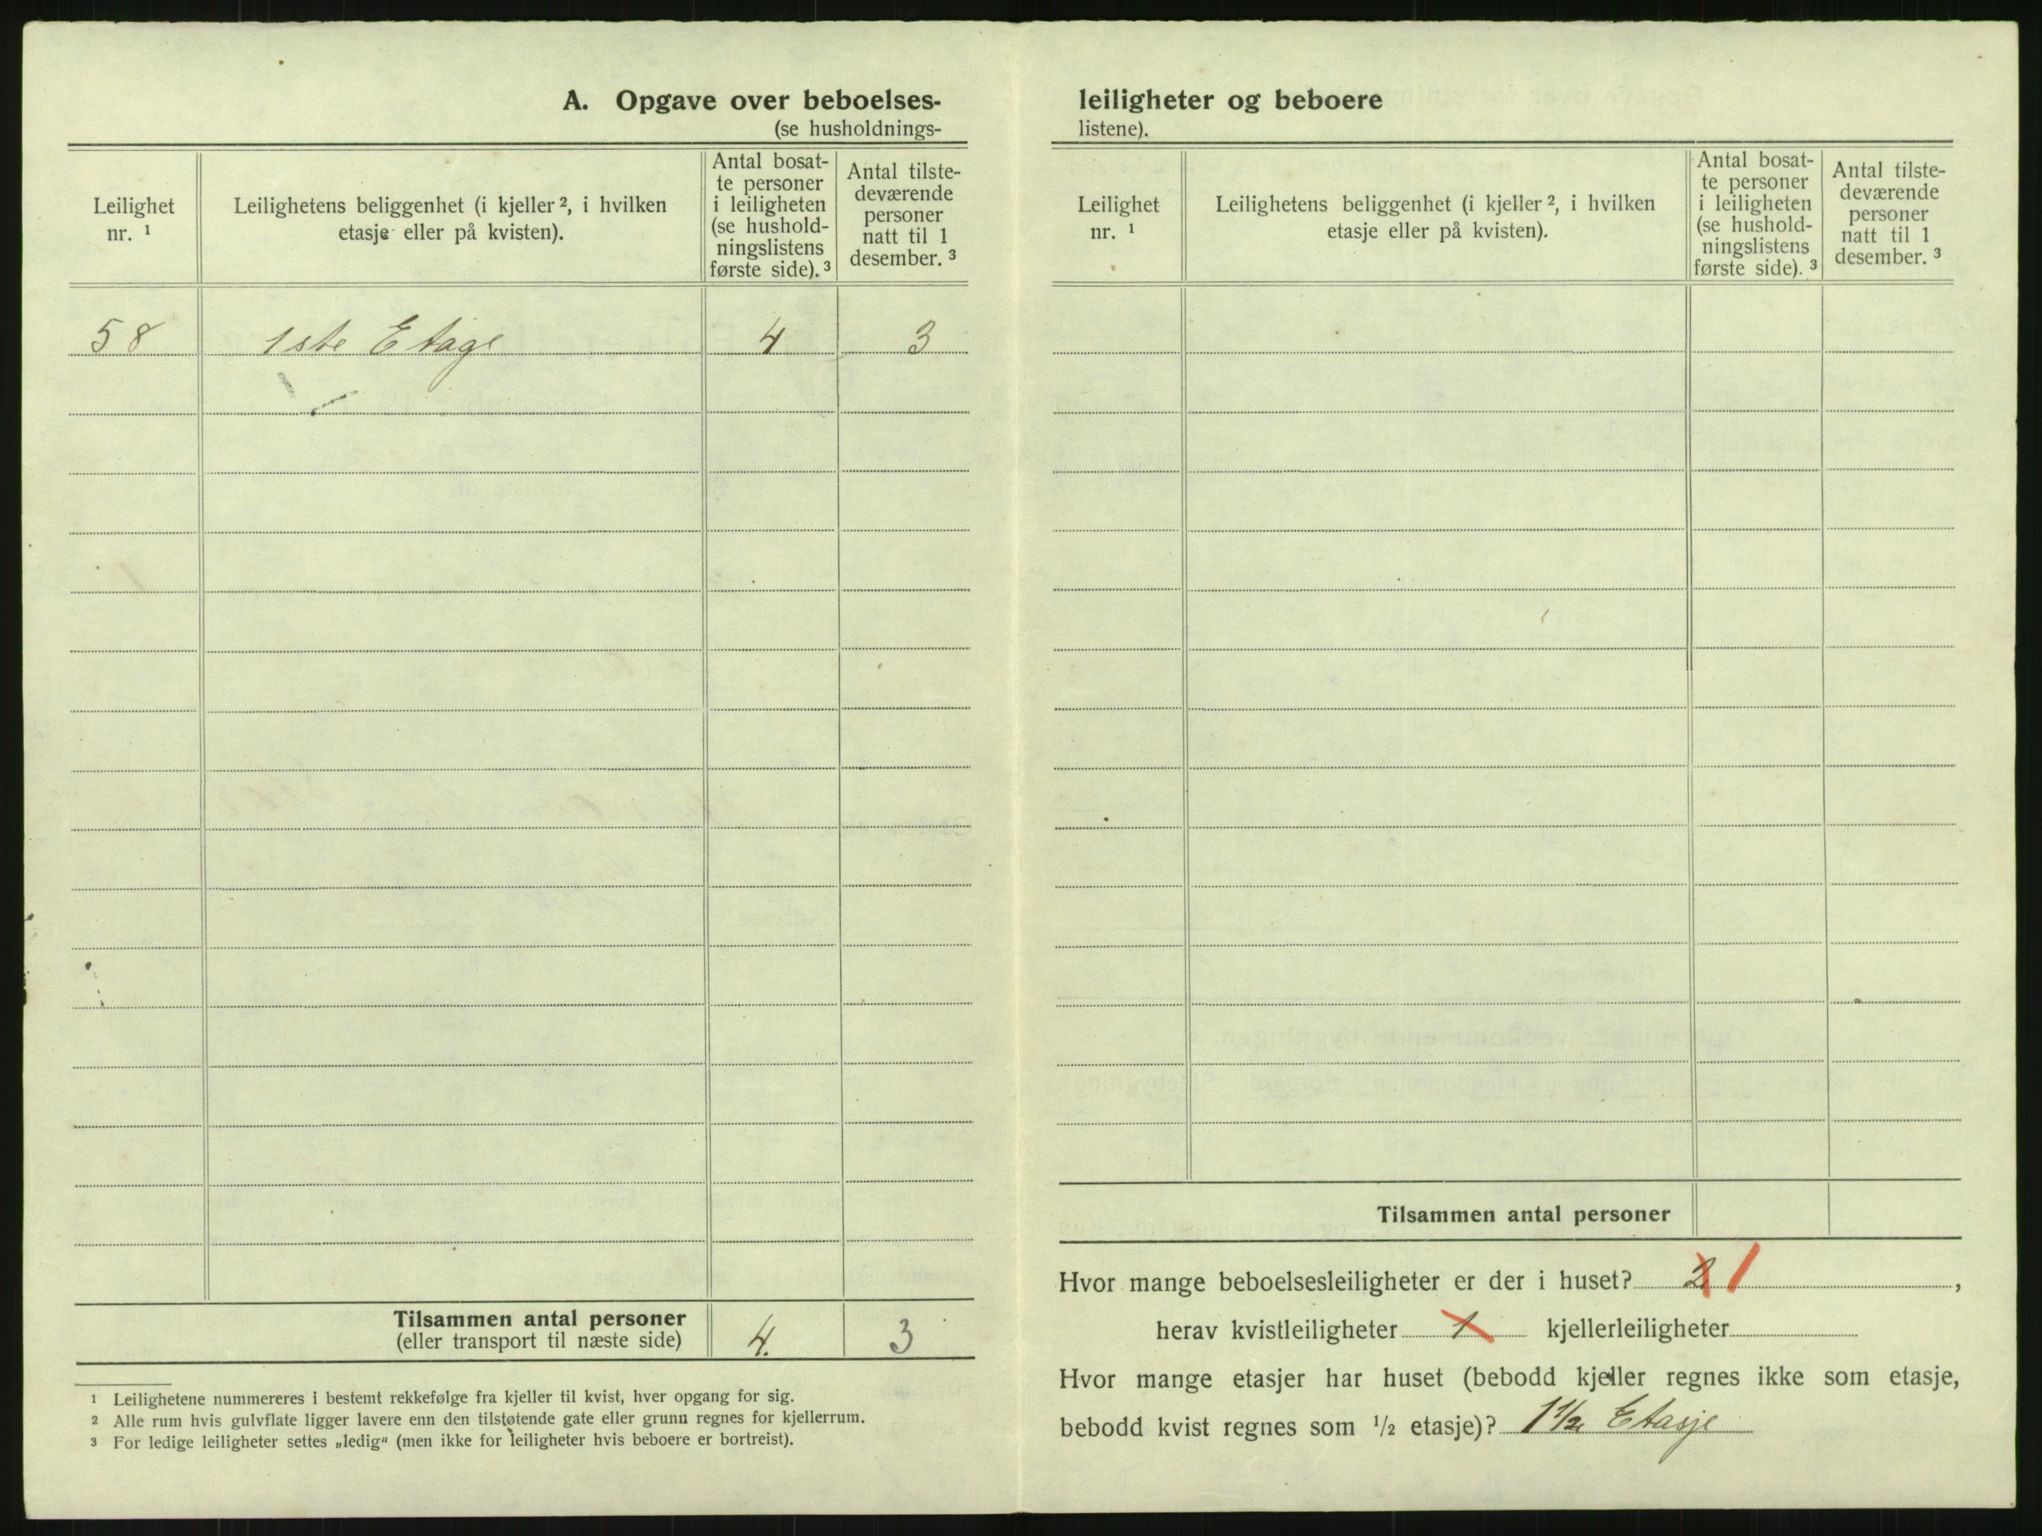 A. Opgave over beboelses-
(se husholdnings-
Leilighet
nr. 1
Leilighetens beliggenhet (i kjeller 2, i hvilken
etasje eller på kvisten).
Antal bosat-
te personer
i leiligheten
(se hushold-
ningslistens
første side). 3
Antal tilste-
deværende
personer
natt til 1
desember. 3
58 1ste Etage 4 3
Tilsammen antal personer
(eller transport til næste side)
4. 3
1 Leilighetene nummereres i bestemt rekkefølge fra kjeller til kvist, hver opgang for sig.
2 Alle rum hvis gulvflate ligger lavere enn den tilstøtende gate eller grunn regnes for kjellerrum.
3 For ledige leiligheter settes „ledig“ (men ikke for leiligheter hvis beboere er bortreist).
leiligheter og beboere
listene).
Leilighet
nr. 1
Leilighetens beliggenhet (i kjeller 2, i hvilken
etasje eller på kvisten).
Antal bosat-
te personer
i leiligheten
(se hushold-
ningslistens
første side). 3
Antal tilste-
deværende
personer
natt til 1
desember. 3
Tilsammen antal personer
Hvor mange beboelsesleiligheter er der i huset? 2 1,
herav kvistleiligheter 1 kjellerleiligheter
Hvor mange etasjer har huset (bebodd kjeller regnes ikke som etasje,
bebodd kvist regnes som 1/2 etasje)? 1 1/2 Etasje